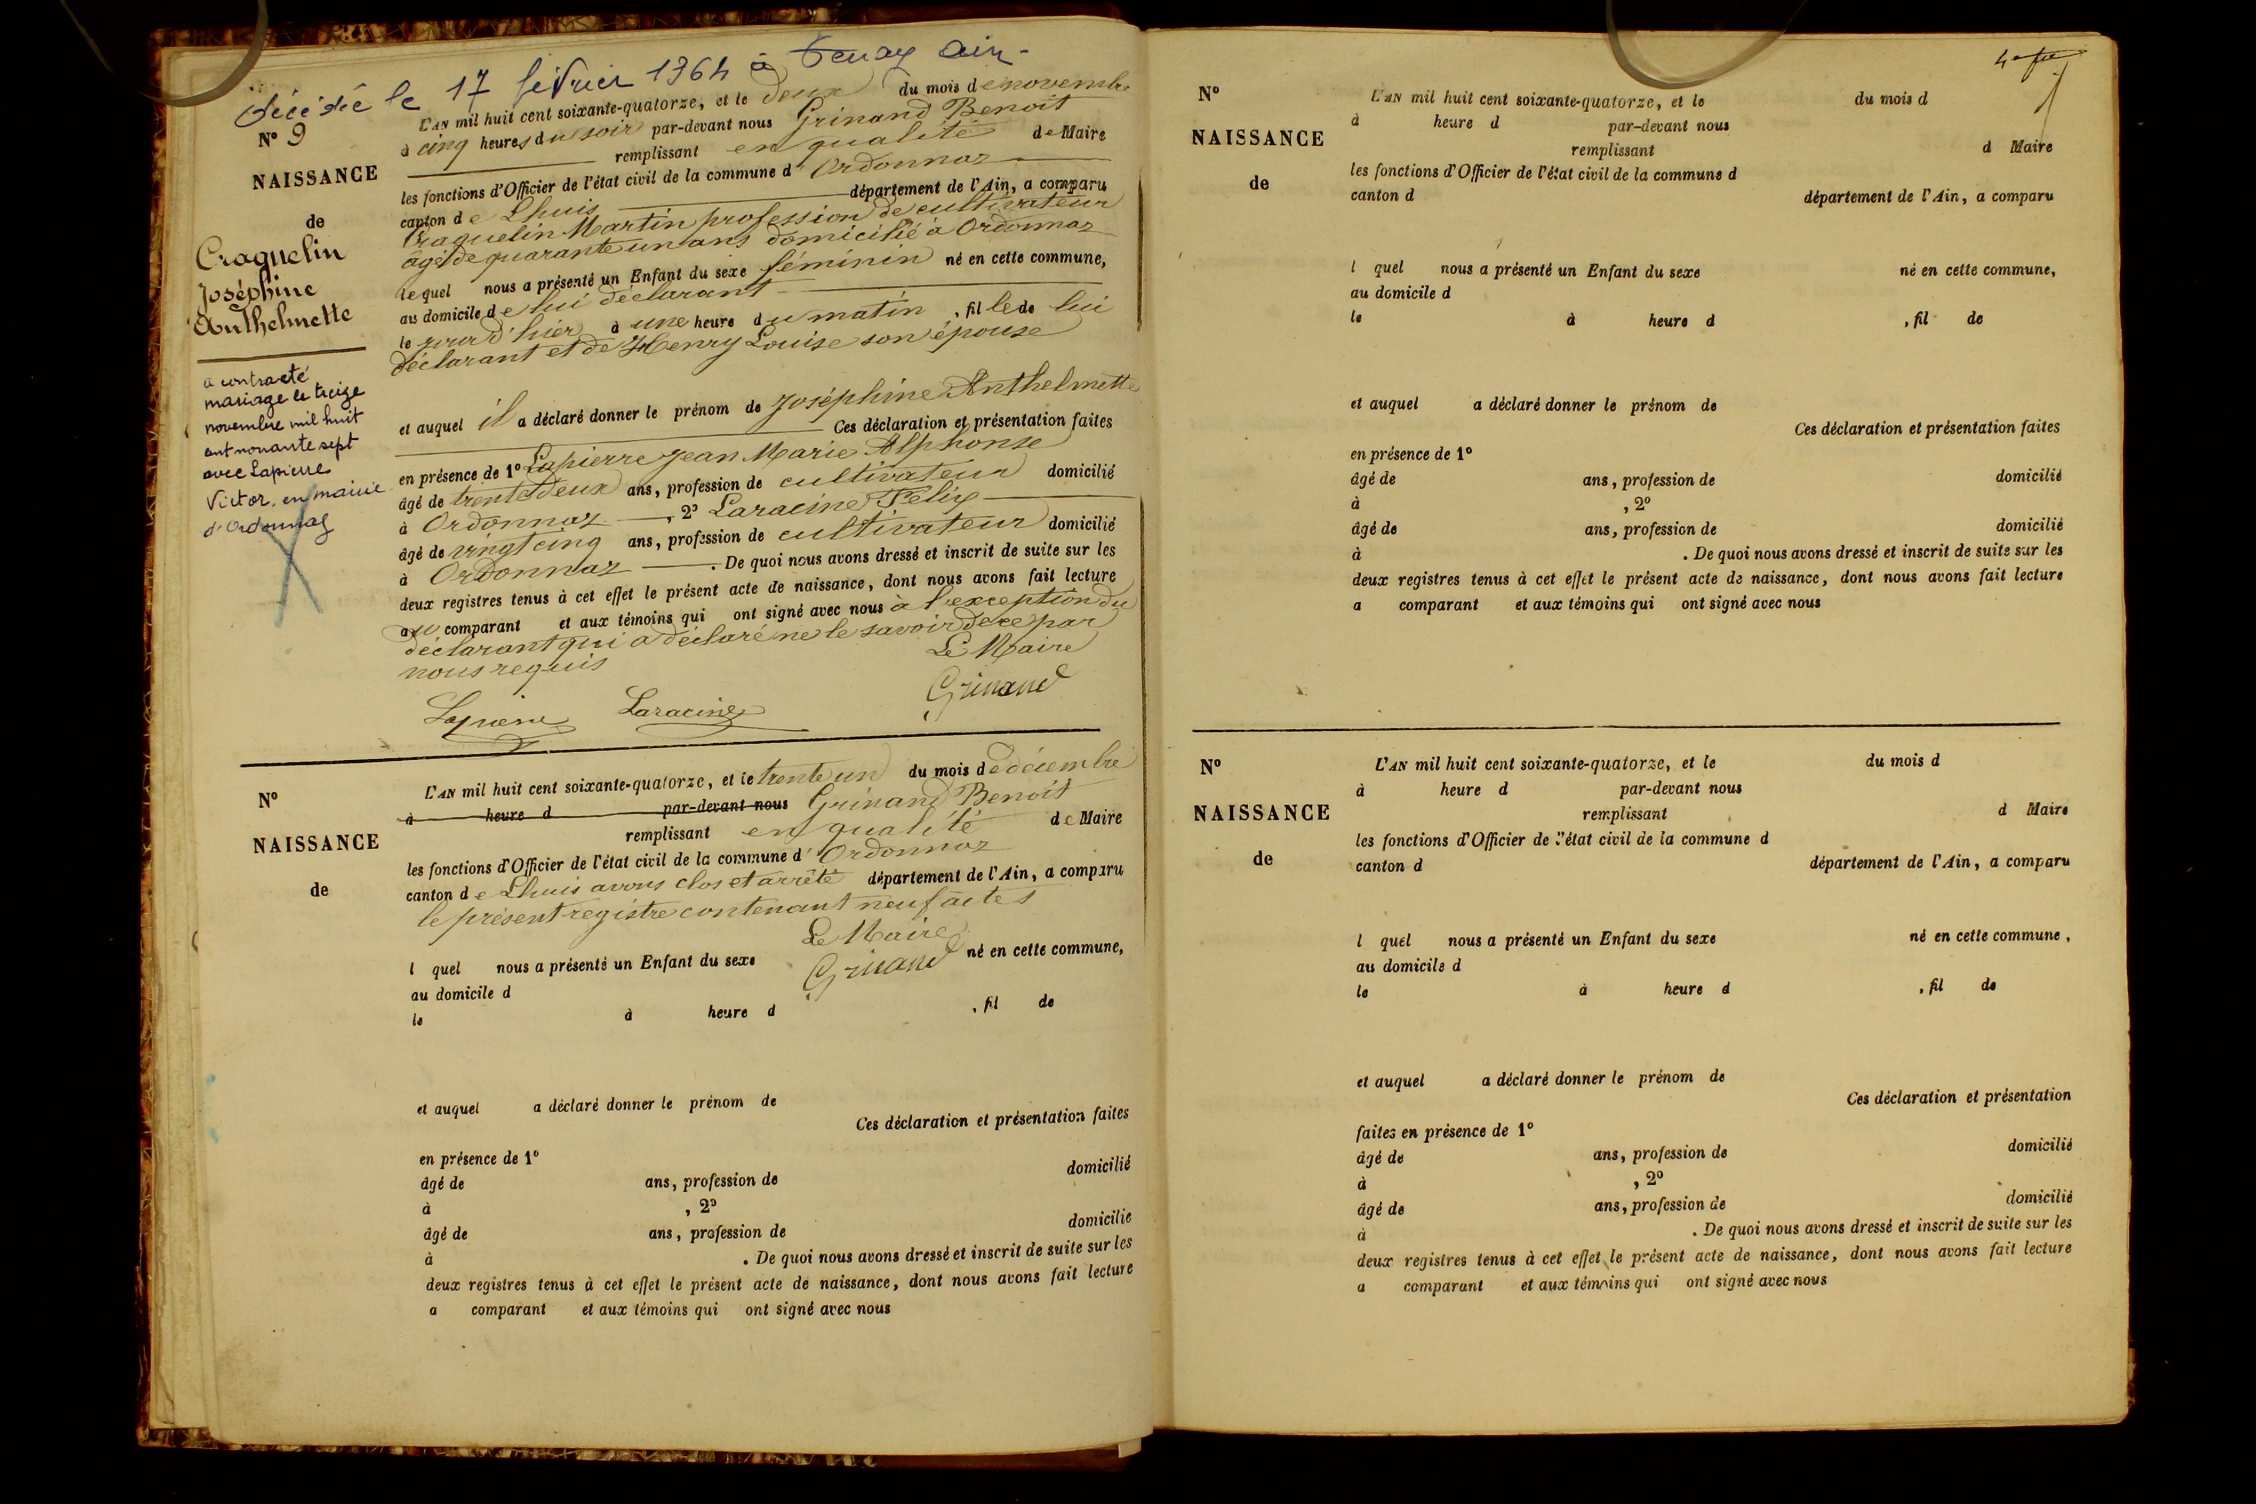 décédée le 17 février 1964 à Tenay Ain-
N° 9
NAISSANCE
de
Craquelin
Joséphine
Anthelmette
a contracté
mariage le treize
novembre mil huit
cent nonante sept
avec Lapierre
Victor, en mairie
d'Ordonnaz
L'AN mil huit cent soixante-quatorze, et le deux du mois de novembre
à cinq heures du soir par-devant nous Grinand Benoit
remplissant en qualité de Maire
les fonctions d'Officier de l'état civil de la commune d'Ordonnaz
canton de Lhuis département de l'Ain, a comparu
Craquelin Martin profession de cultivateur
âgé de quarante un ans domicilié à Ordonnaz
lequel nous a présenté un Enfant du sexe féminin né en cette commune,
au domicile de lui déclarant
le jour d'hier à une heure du matin, fille de lui
déclarant et de Henry Louise son épouse
et auquel il a déclaré donner le prénom de Joséphine Anthelmette
Ces déclaration et présentation faites
en présence de 1° Lapierre Jean Marie Alphonse
âgé de trente deux ans, profession de cultivateur domicilié
à Ordonnaz, 2° Laracine Félix
âgé de vingt cinq ans, profession de cultivateur domicilié
à Ordonnaz. De quoi nous avons dressé et inscrit de suite sur les
deux registres tenus à cet effet le présent acte de naissance, dont nous avons fait lecture
au comparant et aux témoins qui ont signé avec nous à l'exception du
déclarant qui a déclaré ne le savoir de ce par
nous requis
Le Maire
Lapierre Laracine Grinand
N°
NAISSANCE
de
L'AN mil huit cent soixante-quatorze, et le trente un du mois de décembre
à heure d par-devant nous Grinand Benoit
remplissant en qualité de Maire
les fonctions d'Officier de l'état civil de la commune d'Ordonnaz
canton de Lhuis avons clos et arrêté département de l'Ain, a comparu
le présent registre contenant neuf actes
Le Maire
Grinand
l quel nous a présenté un Enfant du sexe né en cette commune,
au domicile d
le à heure d , fil de
et auquel a déclaré donner le prénom de
Ces déclaration et présentation faites
en présence de 1°
âgé de ans, profession de domicilié
à , 2°
âgé de ans, profession de domicilié
à . De quoi nous avons dressé et inscrit de suite sur les
deux registres tenus à cet effet le présent acte de naissance, dont nous avons fait lecture
a comparant et aux témoins qui ont signé avec nous
N°
NAISSANCE
de
L'AN mil huit cent soixante-quatorze, et le du mois d
à heure d par-devant nous
remplissant d Maire
les fonctions d'Officier de l'état civil de la commune d
canton d département de l'Ain, a comparu
l quel nous a présenté un Enfant du sexe né en cette commune,
au domicile d
le à heure d , fil de
et auquel a déclaré donner le prénom de
Ces déclaration et présentation faites
en présence de 1°
âgé de ans, profession de domicilié
à , 2°
âgé de ans, profession de domicilié
à . De quoi nous avons dressé et inscrit de suite sur les
deux registres tenus à cet effet le présent acte de naissance, dont nous avons fait lecture
a comparant et aux témoins qui ont signé avec nous
N°
NAISSANCE
de
L'AN mil huit cent soixante-quatorze, et le du mois d
à heure d par-devant nous
remplissant d Maire
les fonctions d'Officier de l'état civil de la commune d
canton d département de l'Ain, a comparu
l quel nous a présenté un Enfant du sexe né en cette commune,
au domicile d
le à heure d , fil de
et auquel a déclaré donner le prénom de
Ces déclaration et présentation
faites en présence de 1°
âgé de ans, profession de domicilié
à , 2°
âgé de ans, profession de domicilié
à . De quoi nous avons dressé et inscrit de suite sur les
deux registres tenus à cet effet le présent acte de naissance, dont nous avons fait lecture
a comparant et aux témoins qui ont signé avec nous